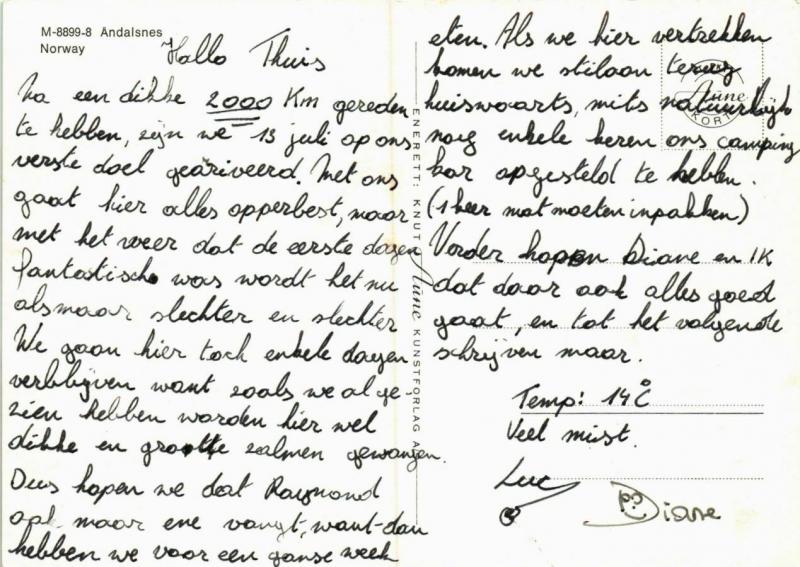 M-8899-8 Åndalsnes
Norway
Hallo Thuis
Na een dikke 2000 Km gereden
te hebben, zijn we 13 juli op ons
verste doel geariveerd. Met ons
gaat hier alles opperbest, maar
met het weer dat de eerste dagen
fantastisch was wordt het nu
alsmaar slechter en slechter
We gaan hier toch enkele dagen
verblijven want zoals we al ge-
zien hebben worden hier wel
dikke en grootte zalmen gevangen.
Dus hopen we dat Raymond
ook maar ene vangt, want dan
hebben we voor een ganse week
eten. Als we hier vertrekken
komen we stilaan terug
huiswaarts, mits natuurlijk
nog enkele keren ons camping
kar opgesteld te hebben.
(1 keer nat moeten inpakken)
Vorder hopen Diane en IK
dat daar ook alles goed
gaat, en tot het volgende
schrijven maar.
Temp: 14°C
Veel mist.
Luc
Diane
ENERETT: KNUT Aune KUNSTFORLAG A
Aune
KORT